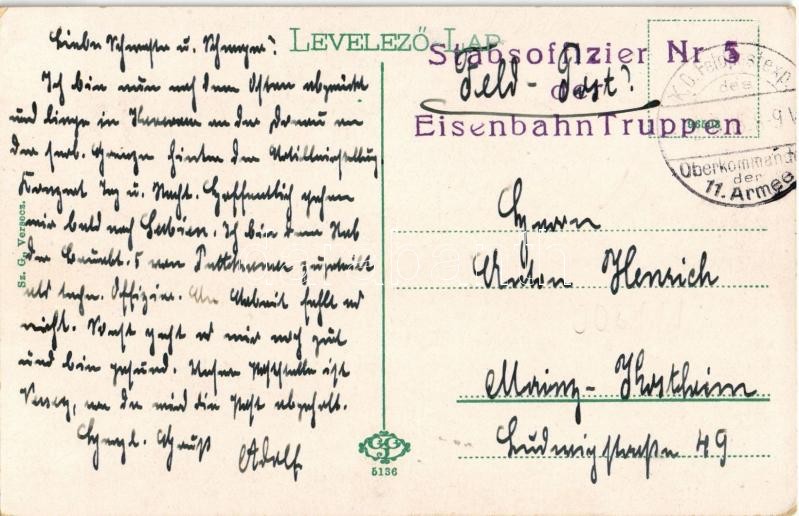 LEVELEZŐ LAP
Stabsoffizier Nr 5
der
EisenbahnTruppen
Feld-Post!
K.D. Feldpostexp.
des
Oberkommando
der
11. Armee
Liebe Schwester u. Schwager!
Ich bin nun nach dem Osten abgerückt
und liege in an der Donau an
der serb. Grenze hinter der Artilleriestellung
Tag u. Nacht. Hoffentlich gehen
wir bald nach Serbien. Ich bin dem Stab
der Baubt. 5 von zugeteilt
als techn. Offizier. An Arbeit fehlt es
nicht. Sonst geht es mir noch gut
und bin gesund. Unsere Poststelle ist
von da wird die Post abgeholt.
Herzl. Gruß Adolf
Herrn
Anton Henrich
Mainz-Kostheim
Ludwigstraße 49
Sz. G. Versecz.
5136